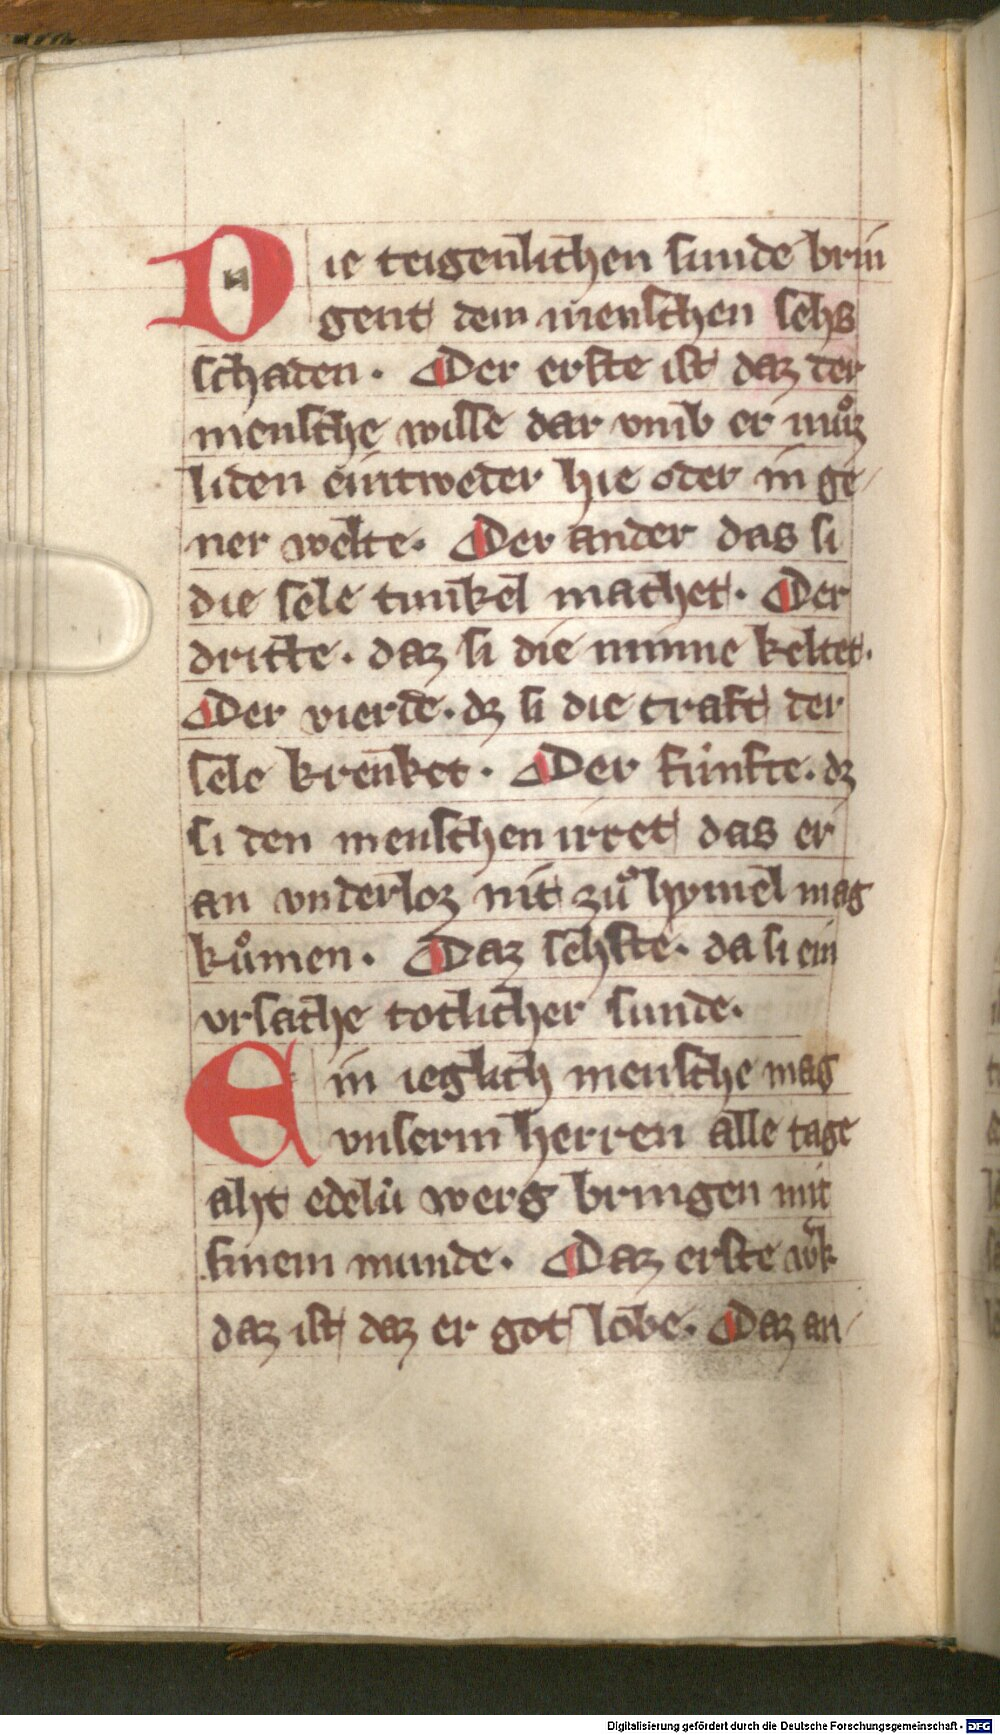 Die teigenlichen sunde brin
gent dem menschen sehs
schaden. Der erste ist daz der
mensche wisse dar vmb er muͦz
liden eintweder hie oder in ge
ner welte. Der ander das si
die sele tunkel machet. Der
dritte. daz si die minne keltet.
Der vierde. dz si die craft der
sele krenket. Der fúnfte. dz
si den menschen irret das er
an vnderloz nit zuͦ hymel mag
kuͦmen. Daz sehste. da si ein
vrsache totlicher sunde.
Ein ieglich mensche mag
vnserm herren alle tage
aht edelú werg bringen mit
sinem munde. Daz erste wͤk
daz ist daz er got lobe. Daz an
Digitalisierung gefördert durch die Deutsche Forschungsgemeinschaft - DFG